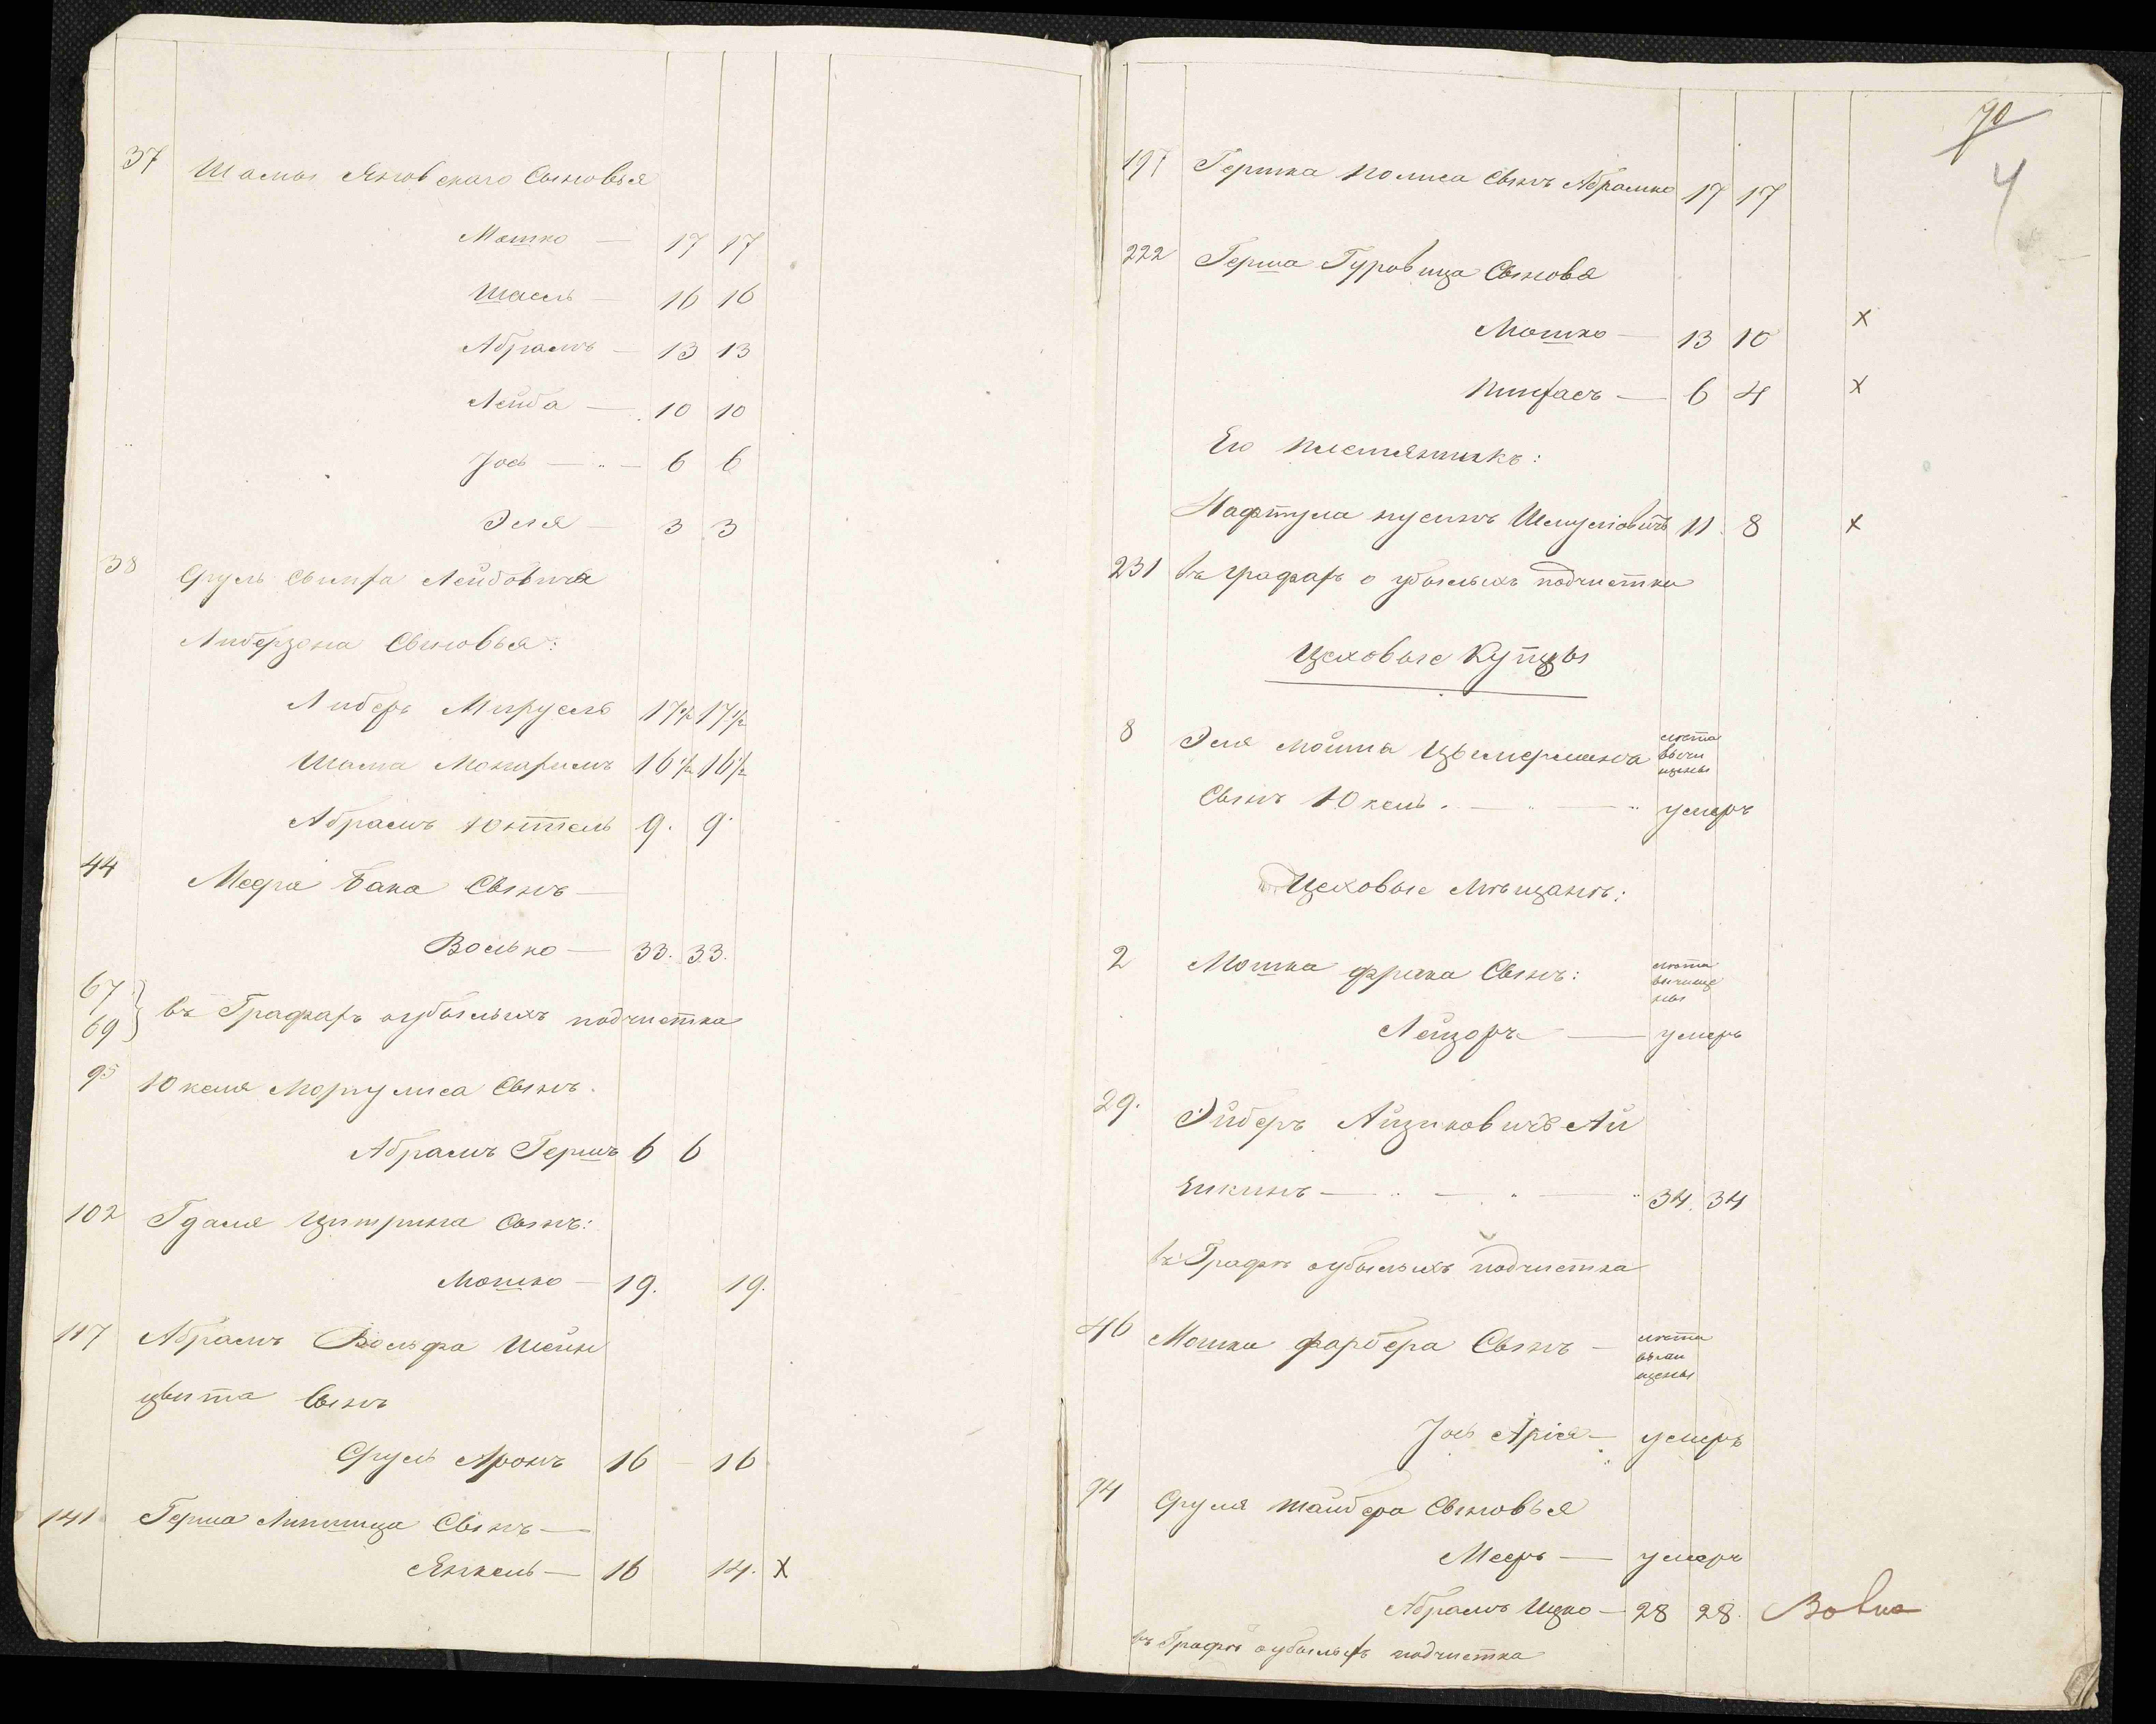 37 Шамы Яновскаго Сыновья
Мошко — 17 17
Шаель — 16 16
Абрамъ — 13 13
Лейба — 10 10
Іось — 6 6
Эля — 3 3
38 Сруль Сымха Лейбовича
Либерзона Сыновья:
Либеръ 17½ 17½
Шама 16½ 16½
Абрамъ Юнтель 9. 9.
44 Меера Бака Сынъ —
Волько — 33. 33.
67
69 } въ Графахъ о убылыхъ подчистка
95 Юкеля Моргулиса Сынъ.
Абрамъ Гершъ 6 6
102 Гдаля Цитрина Сынъ:
Мошко — 19. 19.
117 Абрамъ Вольфа Шейн
цвита Сынъ
Сруль Аронъ 16 — 16
141 Герша Липшица Сынъ —
Янкель — 16 14. X
90
4
197 Гершка Полиса Сынъ Абрамко 17 17
222 Герша Гуровица Сыновя
Мошко — 13 10 X
Пинхасъ — 6 4 X
Его племянникъ:
Нафтула нусинъ Шмуліовичъ 11 8 X
231 въ графахъ о убылыхъ подчистки
Цеховые Купцы
8 Эля Мошка Цымермана лѣта вычи щены
Сынъ Юкель. — — умеръ
Цеховые Мѣщанѣ:
2 Мошка фрика Сынъ: лѣта вычище ны
Лейзоръ — умеръ
29. Эйберъ Айзиковичъ Ай
— — — 34. 34
въ Графѣ о убылыхъ подчистка
46 Мошки фарбера Сынъ — лѣта вычи щены
Іось Арія — умеръ
94 Сруля Тайбера Сыновья
Мееръ — умеръ
Абрамъ Ицко — 28 28. Вовка
въ Графѣ о убылыхъ подчистка